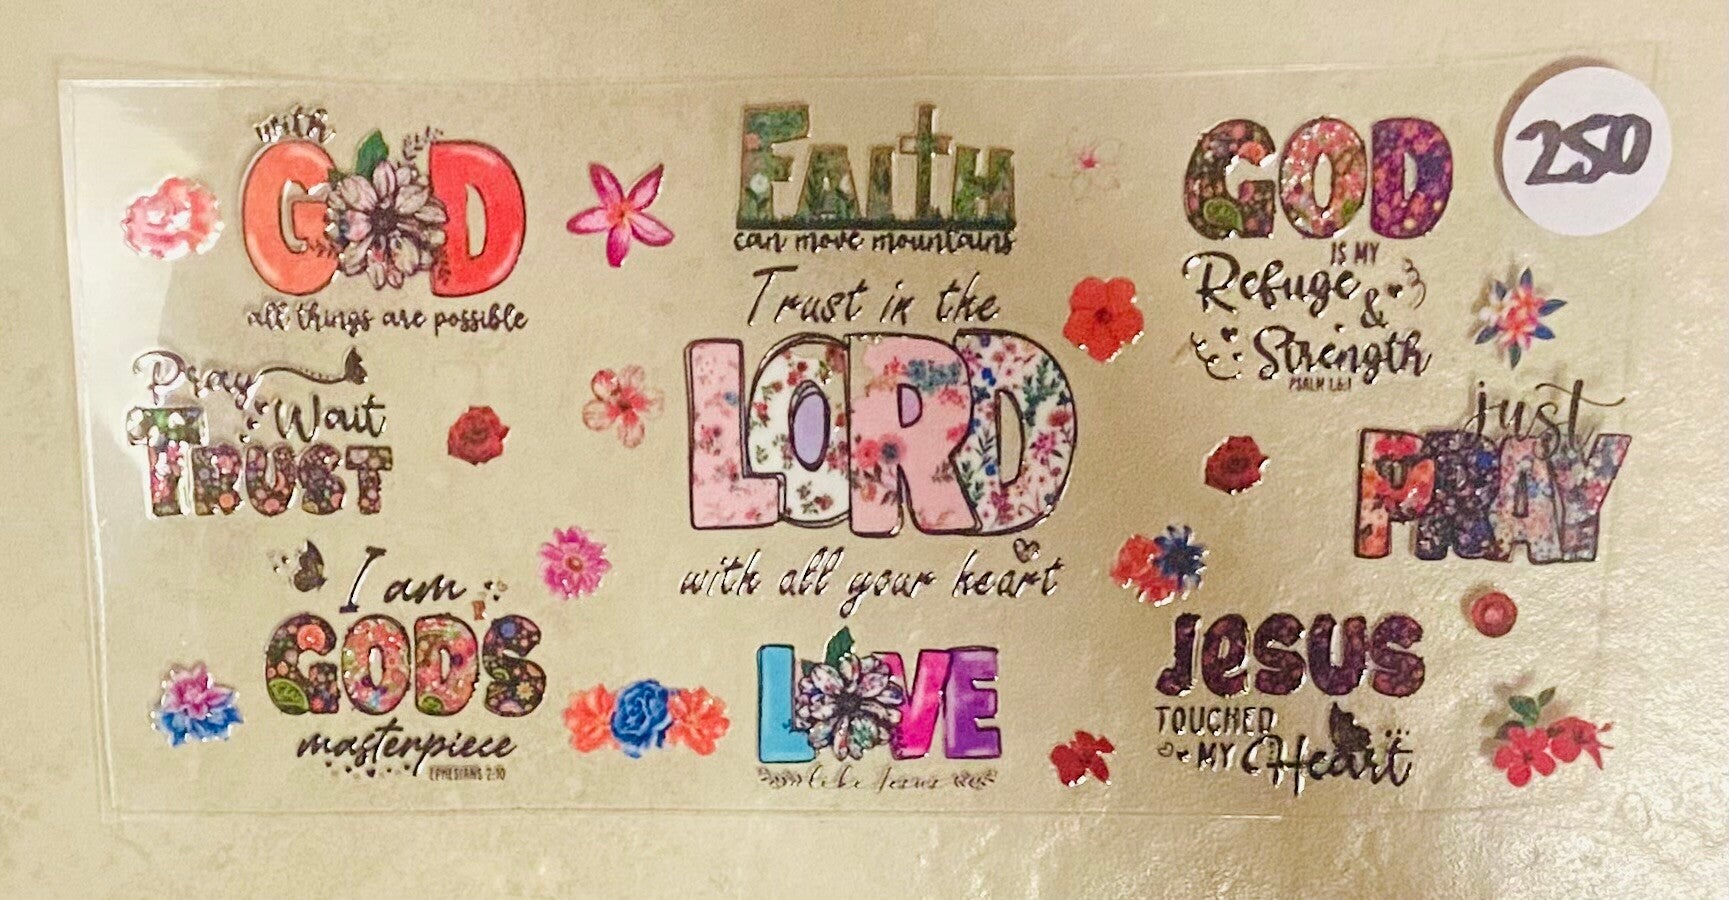 with
GOD
all things are possible
Faith
can move mountains
GOD
IS MY
Refuge
&
Strength
250
Trust in the
LORD
with all your heart
Pray
Wait
TRUST
just
PRAY
I am
GODS
masterpiece
EPHESIANS 2:10
LOVE
like Jesus
JESUS
TOUCHED
MY Heart